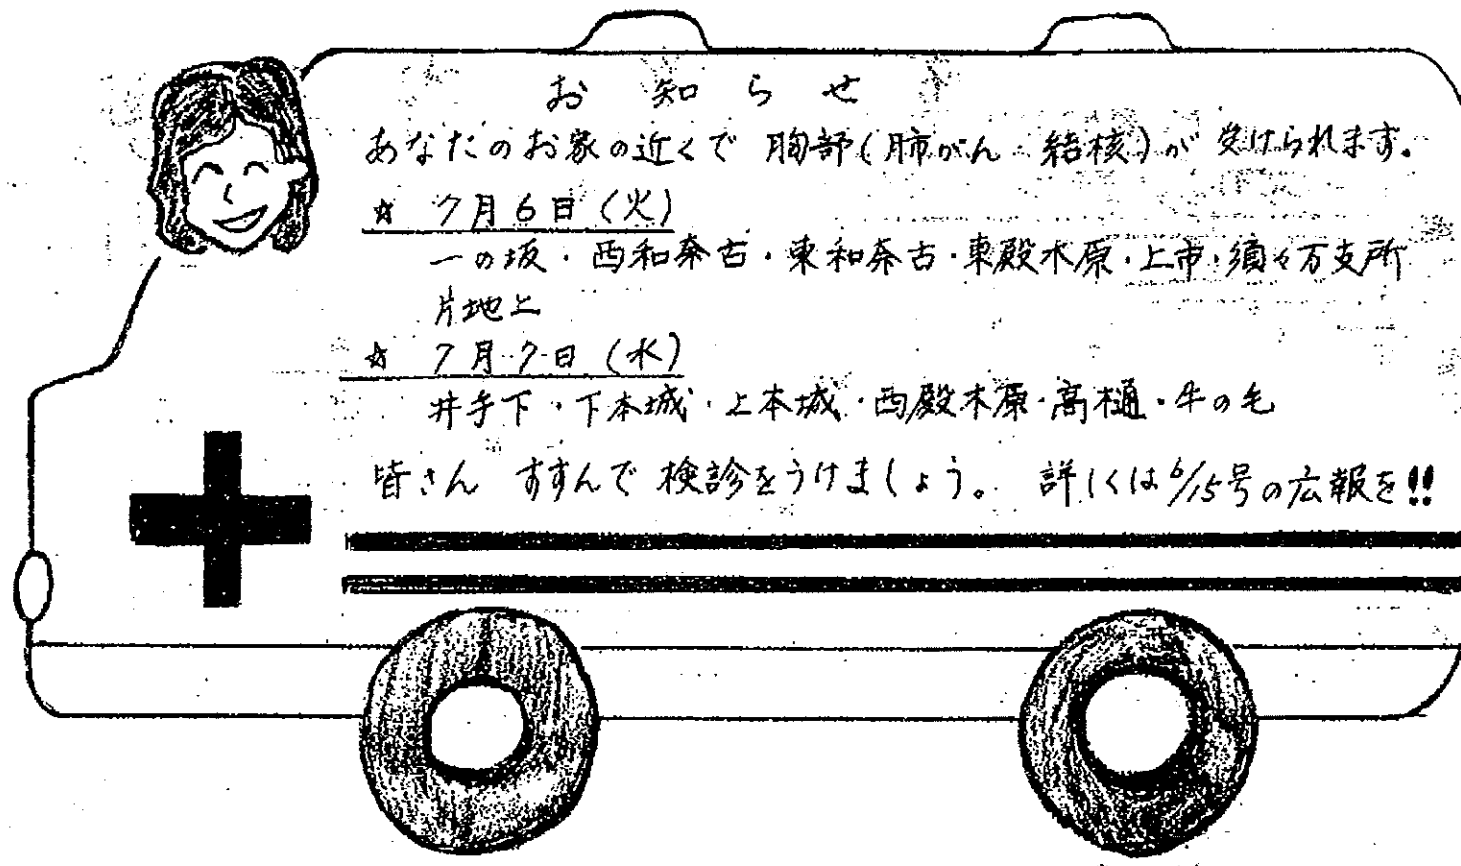 お知らせ
あなたのお家の近くで 胸部(肺がん 結核)が 受けられます。
☆ 7月6日(火)
一の坂・西和奈古・東和奈古・東殿木原・上市・須々万支所
片地上
☆ 7月7日(水)
井手下・下本城・上本城・西殿木原・高樋・牛の毛
皆さん すすんで 検診をうけましょう。 詳しくは6/15号の広報を!!